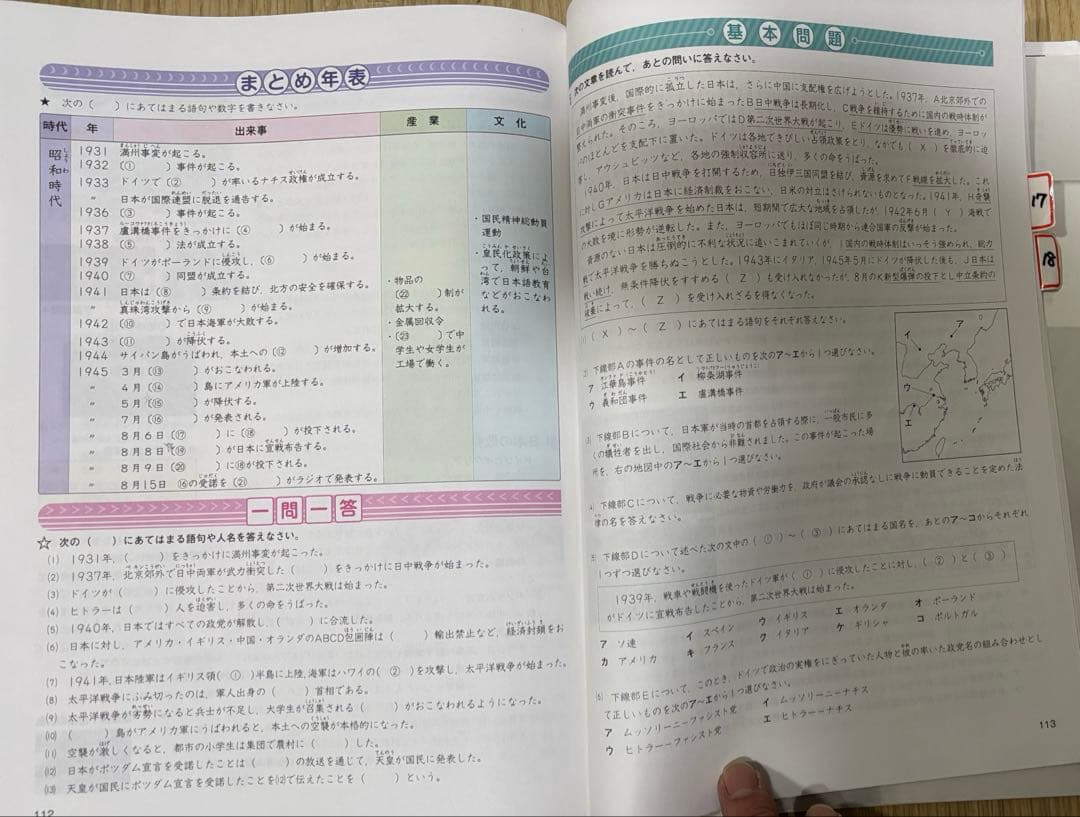 まとめ年表
★ 次の(　)にあてはまる語句や数字を書きなさい。
時代 年 出来事 産業 文化
昭和時代
1931 満州事変が起こる。
1932 (① )事件が起こる。
1933 ドイツで(② )が率いるナチス政権が成立する。
〃 日本が国際連盟に脱退を通告する。
1936 (③ )事件が起こる。
1937 盧溝橋事件をきっかけに(④ )が始まる。
1938 (⑤ )法が成立する。
1939 ドイツがポーランドに侵攻し,(⑥ )が始まる。
1940 (⑦ )同盟が成立する。
1941 日本は(⑧ )条約を結び,北方の安全を確保する。
〃 真珠湾攻撃から(⑨ )が始まる。
1942 (⑩ )で日本海軍が大敗する。
1943 (⑪ )が降伏する。
1944 サイパン島がうばわれ,本土への(⑫ )が増加する。
1945 3月(⑬ )がおこなわれる。
〃 4月(⑭ )島にアメリカ軍が上陸する。
〃 5月(⑮ )が降伏する。
〃 7月(⑯ )が発表される。
〃 8月6日(⑰ )に(⑱ )が投下される。
〃 8月8日(⑲ )が日本に宣戦布告する。
〃 8月9日(⑳ )に⑱が投下される。
〃 8月15日 ⑯の受諾を(㉑ )がラジオで発表する。
・物品の
(㉒ )制が
拡大する。
・金属回収令
・(㉓ )で中
学生や女学生が
工場で働く。
・国民精神総動員
運動
・皇民化政策によ
って,朝鮮や台
湾で日本語教育
などがおこなわ
れる。
一問一答
☆ 次の(　)にあてはまる語句や人名を答えなさい。
(1) 1931年,( )をきっかけに満州事変が起こった。
(2) 1937年,北京郊外で日中両軍が武力衝突した( )をきっかけに日中戦争が始まった。
(3) ドイツが( )に侵攻したことから,第二次世界大戦は始まった。
(4) ヒトラーは( )人を迫害し,多くの命をうばった。
(5) 1940年,日本ではすべての政党が解散し,( )に合流した。
(6) 日本に対し,アメリカ・イギリス・中国・オランダのABCD包囲陣は( )輸出禁止など,経済封鎖をお
こなった。
(7) 1941年,日本陸軍はイギリス領(①)半島に上陸,海軍はハワイの(②)を攻撃し,太平洋戦争が始まった。
(8) 太平洋戦争にふみ切ったのは,軍人出身の( )首相である。
(9) 太平洋戦争が劣勢になると兵士が不足し,大学生が召集される( )がおこなわれるようになった。
(10) ( )島がアメリカ軍にうばわれると,本土への空襲が本格的になった。
(11) 空襲が激しくなると,都市の小学生は集団で農村に( )した。
(12) 日本がポツダム宣言を受諾したことは( )の放送を通じて,天皇が国民に発表した。
(13) 天皇が国民にポツダム宣言を受諾したことを(12)で伝えたことを( )という。
112
基本問題
次の文章を読んで,あとの問いに答えなさい。
満州事変後,国際的に孤立した日本は,さらに中国に支配権を広げようとした。1937年,A北京郊外での
日中両軍の衝突事件をきっかけに始まったB日中戦争は長期化し,C戦争を維持するために国内の戦時体制が
えられた。そのころ,ヨーロッパではD第二次世界大戦が起こり,Eドイツは優勢に戦いを進め,ヨーロッ
のほとんどを支配下に置いた。ドイツは各地できびしい占領政策をとり,なかでも( X )を徹底的に迫
害し,アウシュビッツなど,各地の強制収容所に送り,多くの命をうばった。
1940年,日本は日中戦争を打開するため,日独伊三国同盟を結び,資源を求めてF戦線を拡大した。これ
に対しGアメリカは日本に経済制裁をおこない,日米の対立はさけられないものとなった。1941年,H奇襲
攻撃によって太平洋戦争を始めた日本は,短期間で広大な地域を占領したが,1942年6月( Y )海戦で
の大敗を境に形勢が逆転した。また,ヨーロッパでもほぼ同じ時期から連合国軍の反撃が始まった。
資源のない日本は圧倒的に不利な状況に追いこまれていくが,I国内の戦時体制はいっそう強められ,総力
戦で太平洋戦争を勝ちぬこうとした。1943年にイタリア,1945年5月にドイツが降伏した後も,J日本は
戦い続け,無条件降伏をすすめる( Z )も受け入れなかったが,8月のK新型爆弾の投下とし中立条約の
破棄によって,( Z )を受け入れざるを得なくなった。
( X )～( Z )にあてはまる語句をそれぞれ答えなさい。
下線部Aの事件の名として正しいものを次のア～エから1つ選びなさい。
ア 江華島事件 イ 柳条湖事件
ウ 義和団事件 エ 盧溝橋事件
下線部Bについて,日本軍が当時の首都を占領する際に,一般市民に多
くの犠牲者を出し,国際社会から非難されました。この事件が起こった場
所を,右の地図中のア～エから1つ選びなさい。
イ ア
ウ
エ
下線部Cについて,戦争に必要な物資や労働力を,政府が議会の承認なしに戦争に動員できることを定めた法
律の名を答えなさい。
下線部Dについて述べた次の文中の(①)～(③)にあてはまる国名を,あとのア～コからそれぞれ
1つずつ選びなさい。
1939年,戦車や戦闘機を使ったドイツ軍が(①)に侵攻したことに対し,(②)と(③)
がドイツに宣戦布告したことから,第二次世界大戦は始まった。
ア ソ連 イ スペイン ウ イギリス エ オランダ オ ポーランド
カ アメリカ キ フランス ク イタリア ケ ギリシャ コ ポルトガル
下線部Eについて,このとき,ドイツで政治の実権をにぎっていた人物と彼の率いた政党名の組み合わせとし
て正しいものを次のア～エから1つ選びなさい。
ア ムッソリーニーファシスト党 イ ムッソリーニーナチス
ウ ヒトラーーファシスト党 エ ヒトラーーナチス
113
17
18